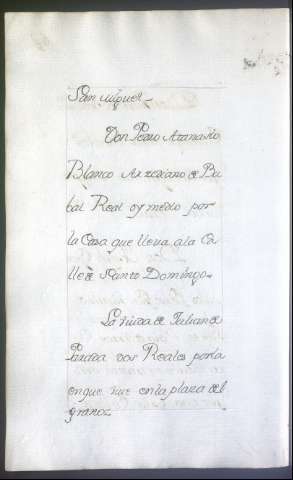 San Miguel
Don Pedro Atanasio
Blanco Arzediano de Bu
bal Real y medio por
la Casa que lleva a la Ca
lle de Santo Domingo.
La viuda de Julian de
Parada dos Reales por la
en que vive en la plaza del
grano